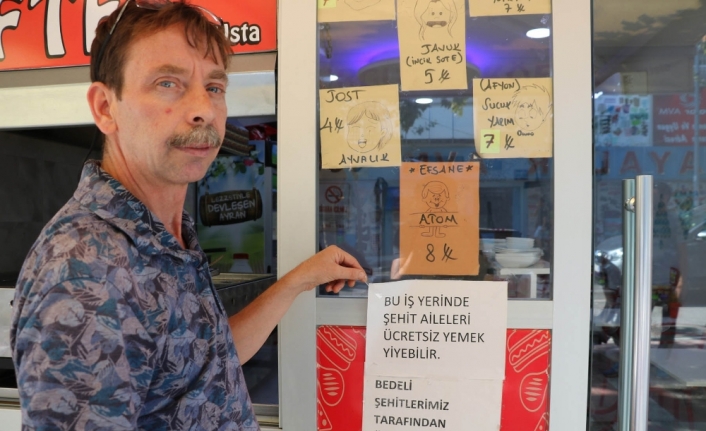 FTE
Usta
7 ₺
TAVUK
(İNCİK SOTE)
5 ₺
JOST
4 ₺
AYVALIK
(AFYON)
SUCUK
YARIM
7 ₺
* EFSANE *
ATOM
8 ₺
DEVLEŞEN
AYRAN
BU İŞ YERİNDE
ŞEHİT AİLELERİ
ÜCRETSİZ YEMEK
YİYEBİLİR.
BEDELİ
ŞEHİTLERİMİZ
TARAFINDAN